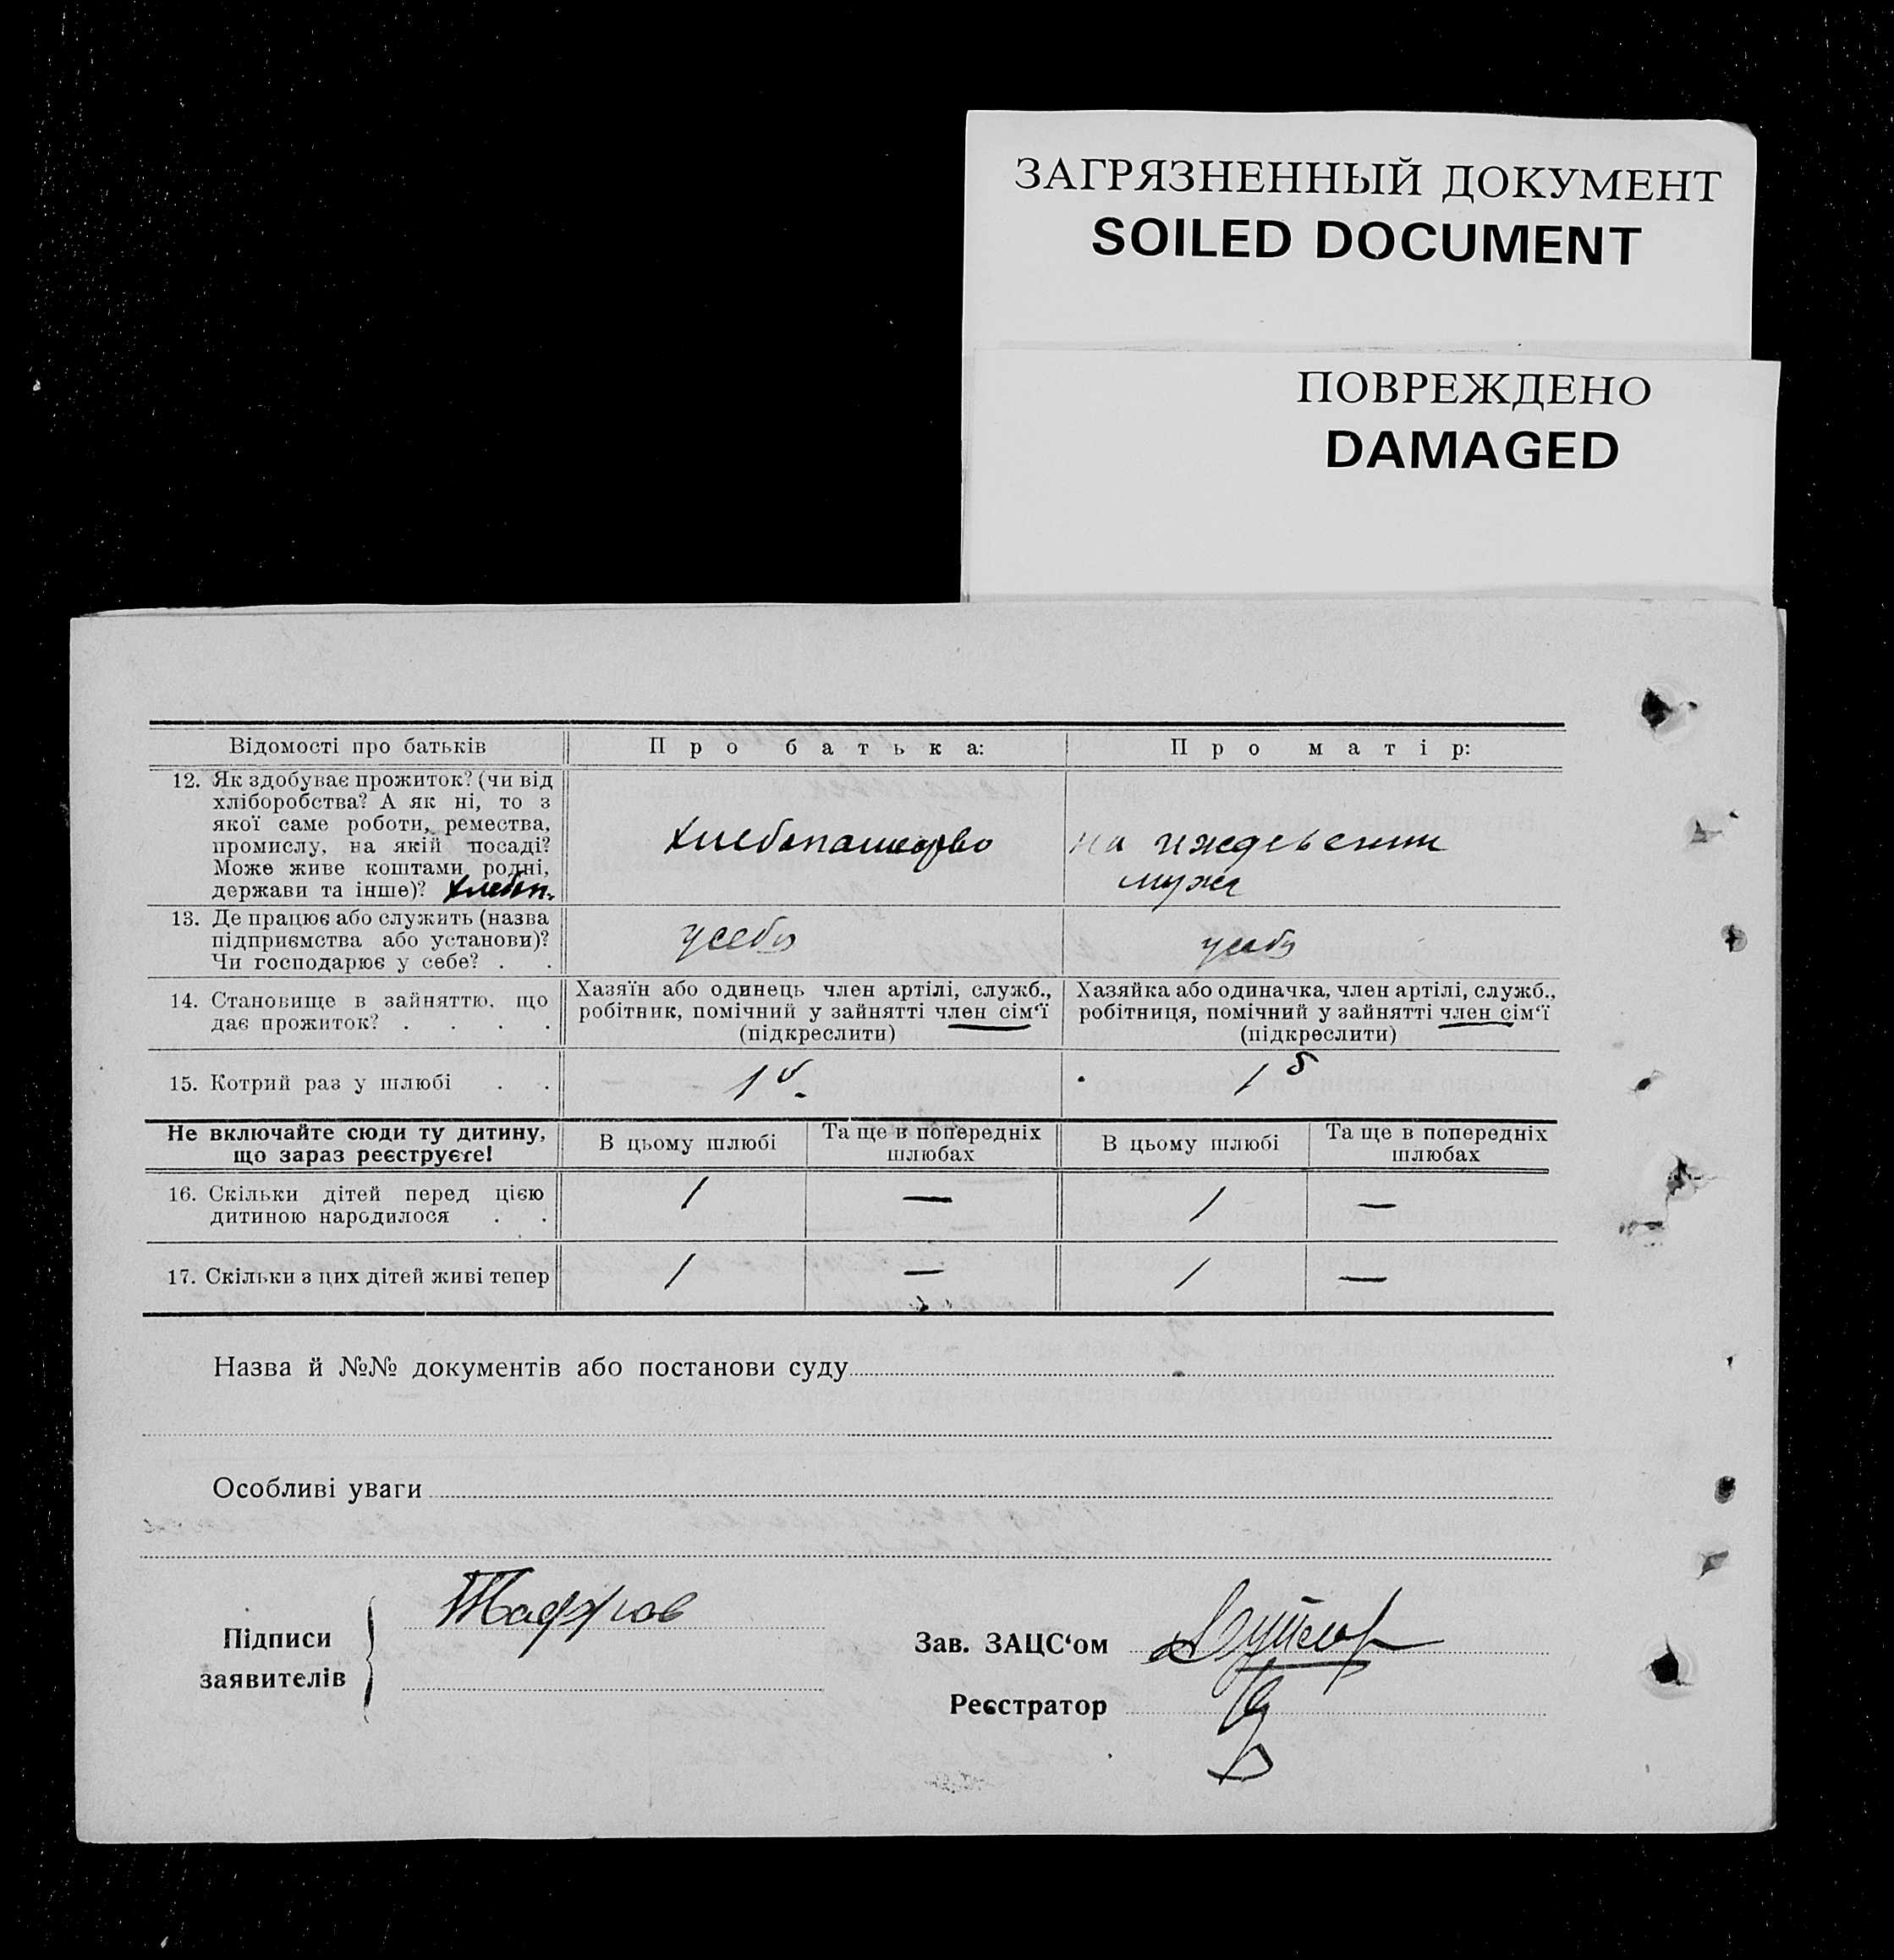 ЗАГРЯЗНЕННЫЙ ДОКУМЕНТ
SOILED DOCUMENT
ПОВРЕЖДЕНО
DAMAGED
Відомості про батьків
Про батька:
Про матір:
12. Як здобуває прожиток? (чи від
хліборобства? А як ні, то з
якої саме роботи, ремества,
промислу, на якій посаді?
Може живе коштами родні,
держави та інше)? хлебоп.
хлебопашество
на иждевении
мужа
13. Де працює або служить (назва
підприємства або установи)?
Чи господарює у себе? . .
у себя
у себя
14. Становище в зайняттю, що
дає прожиток? . . . .
Хазяїн або одинець член артілі, служб.,
робітник, помічний у зайнятті член сім'ї
(підкреслити)
Хазяйка або одиначка, член артілі, служб.,
робітниця, помічний у зайнятті член сім'ї
(підкреслити)
15. Котрий раз у шлюбі . .
1
1
Не включайте сюди ту дитину,
що зараз реєструєте!
В цьому шлюбі
Та ще в попередніх
шлюбах
В цьому шлюбі
Та ще в попередніх
шлюбах
16. Скільки дітей перед цією
дитиною народилося . .
1
—
1
—
17. Скільки з цих дітей живі тепер
1
—
1
—
Назва й №№ документів або постанови суду
Особливі уваги
Підписи
заявителів
Зав. ЗАЦС'ом
Реєстратор